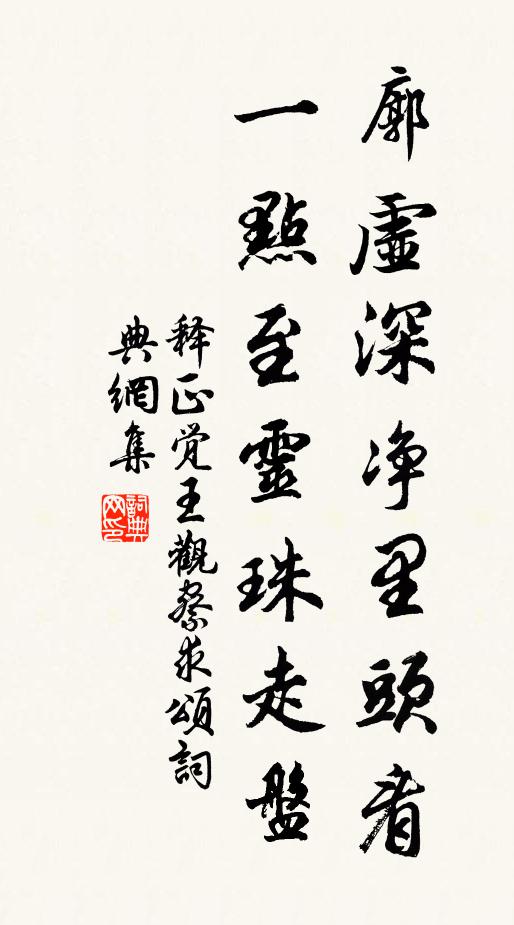 廓虛深净里頭看
一點至靈珠走盤
释正觉王觀察求頌詞
典網集
詞典网印